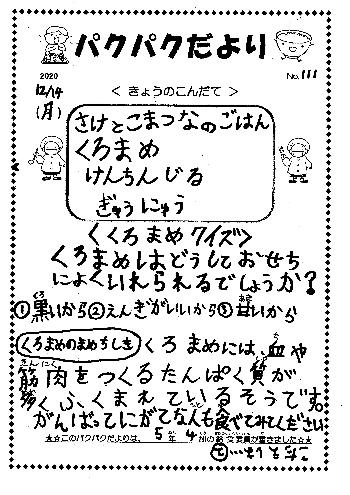 パクパクだより
2020
No. 111
12/14
(月)
＜ きょうのこんだて ＞
さけとこまつなのごはん
くろまめ
けんちんじる
ぎゅうにゅう
＜くろまめクイズ＞
くろまめはどうしておせち
によくいれられるでしょうか？
①黒いから②えんぎがいいから③甘いから
くろまめのまめちしき くろまめには、血や
筋肉をつくるたんぱく質が
くふくまれているそうです。
がんばってにがてな人も食べてみてください
★☆このパクパクだよりは、5年4組の給食委員が書きました☆★